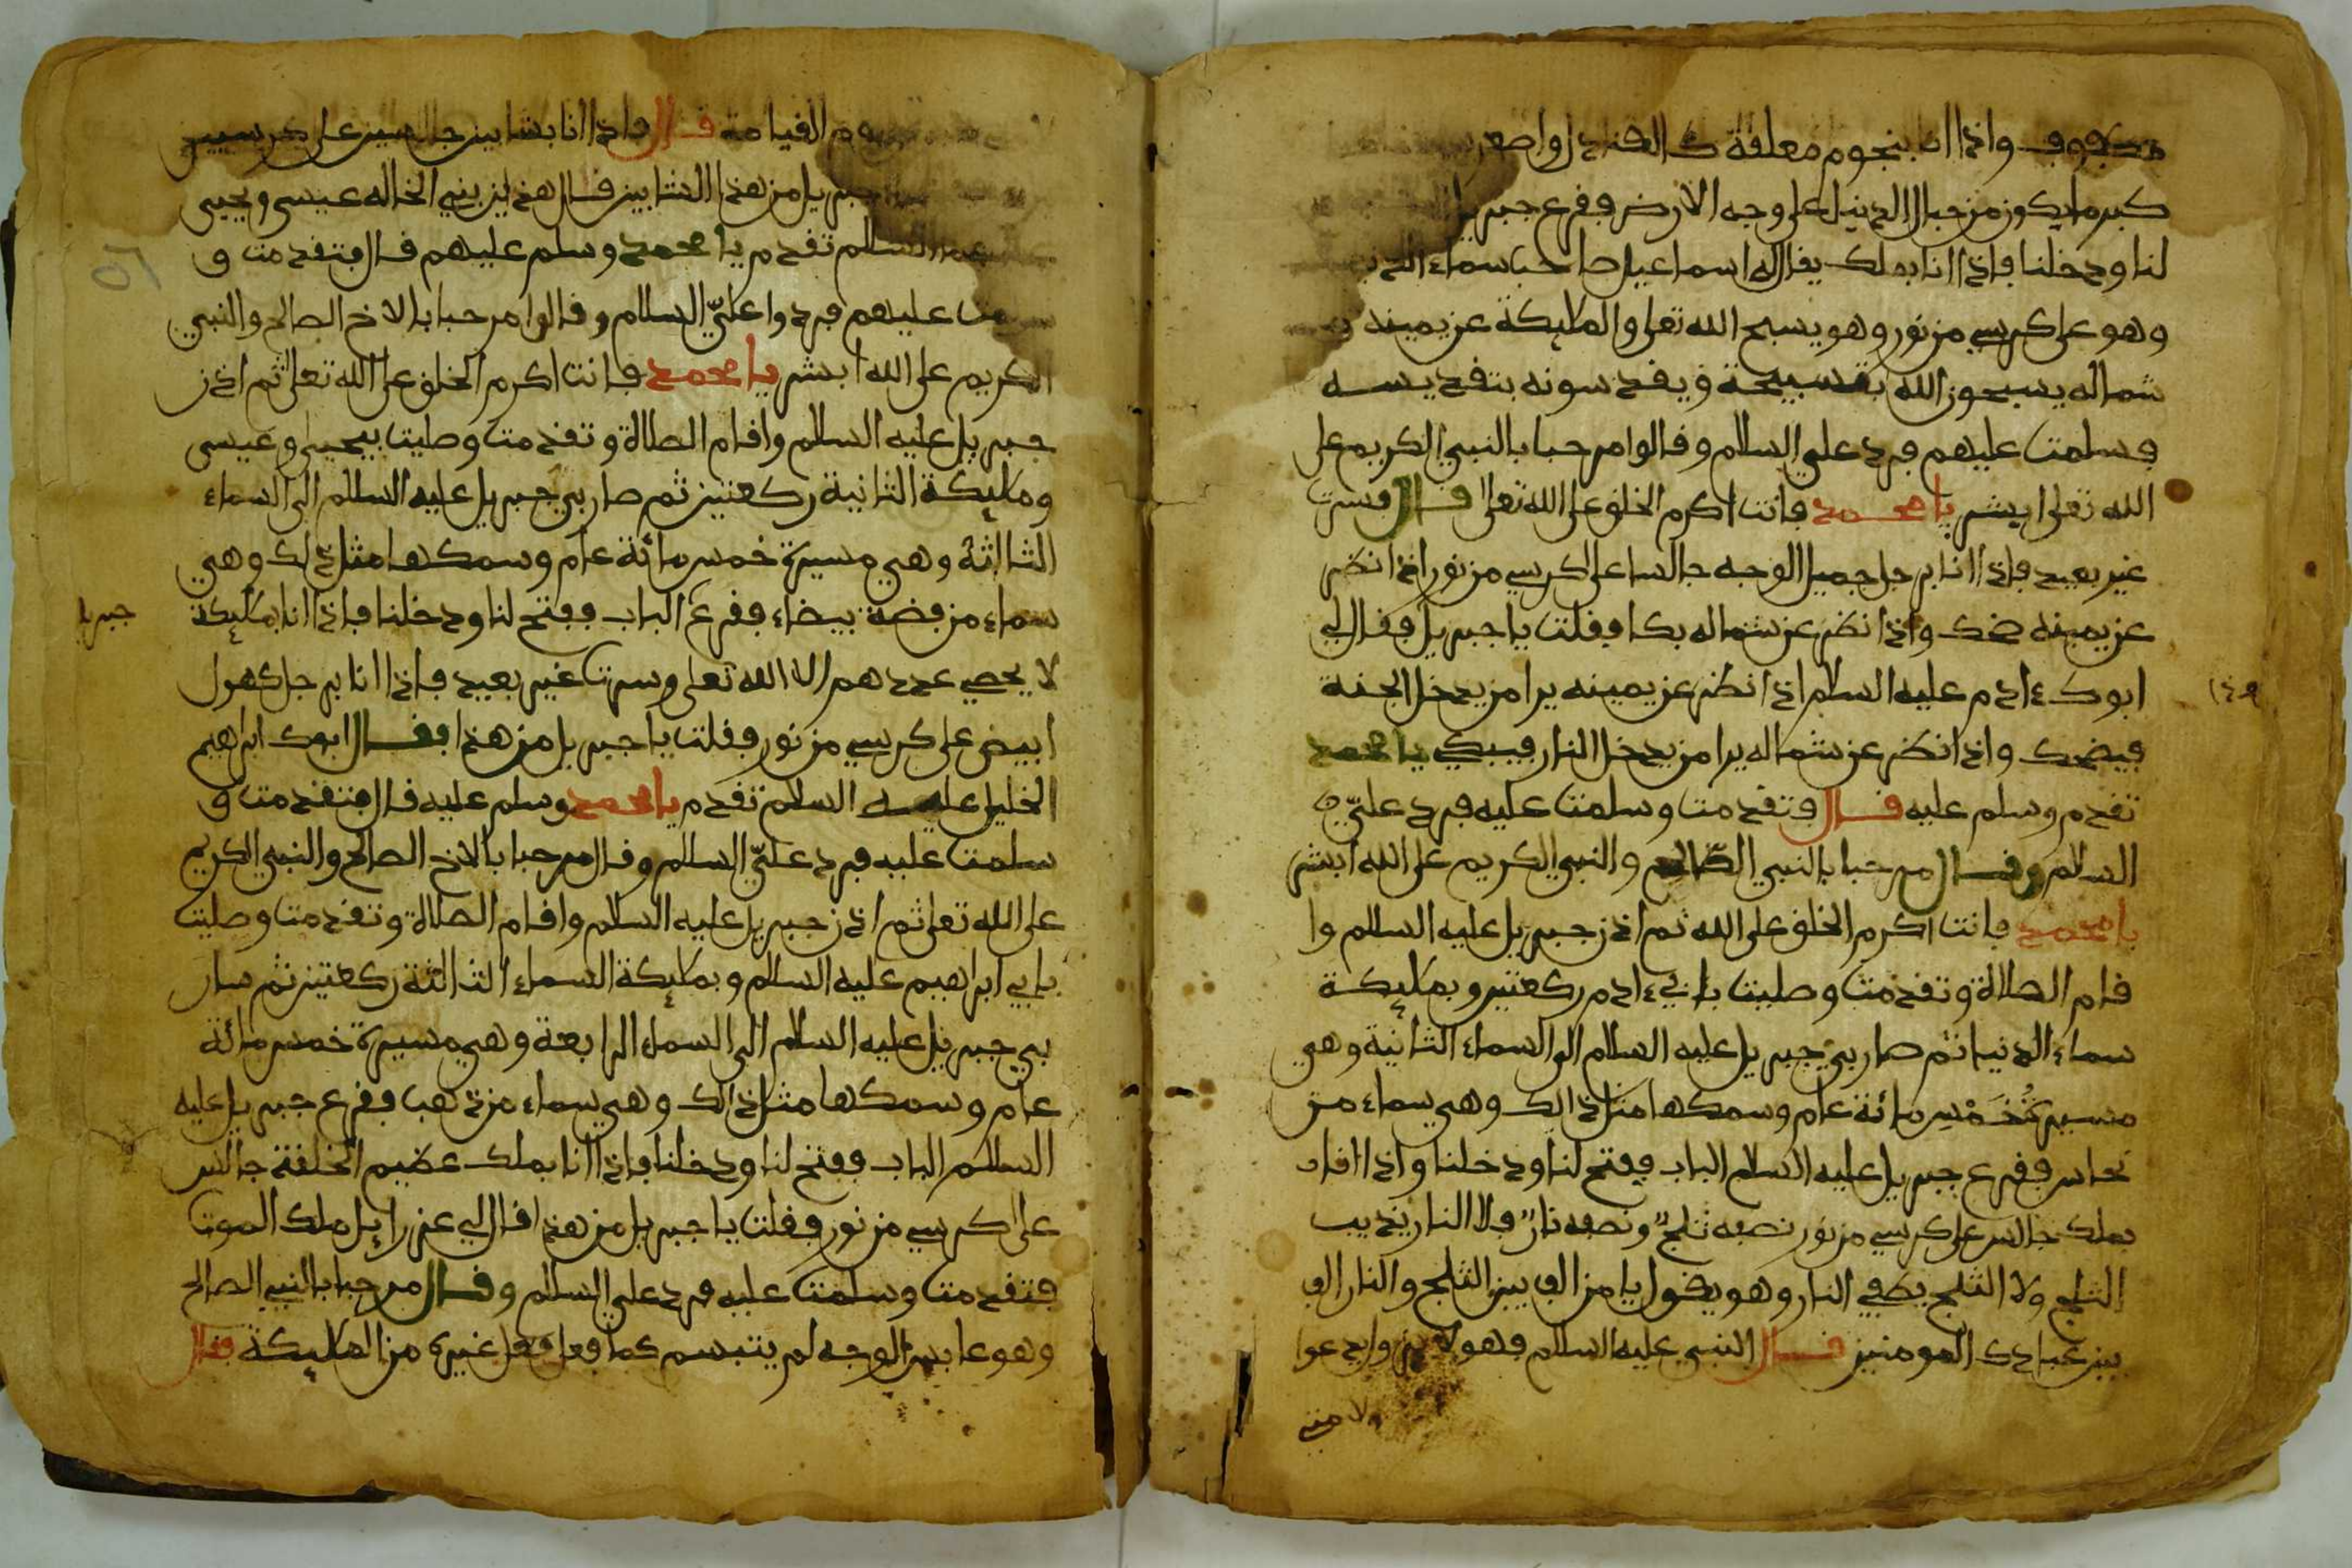 مكفوف واذا انا بنجوم معلقة كالقناديل واصغر
كبير ما يكون من جبال الدنيا على وجه الارض ففرع جبريل
لنا ودخلنا فاذا انا بملك يقال له اسماعيل صاحب سماء الدنيا
وهو على كرسي من نور وهو يسبح الله تعلى والمليكة عن يمينه و
شماله يسبحون الله بتسبيحة ويقدسونه بتقديسه
فسلمت عليهم فرد علي السلام وقالوا مرحبا بالنبي الكريم على
الله تعلى ابشر يا محمد فانت اكرم الخلق على الله تعلى قال فسرت
غير بعيد فاذا انا برجل جميل الوجه جالسا على كرسي من نور اذا نظر
عن يمينه ضحك واذا نظر عن شماله بكا فقلت يا جبريل فقال لي
ابوك ءادم عليه السلام اذا نظر عن يمينه يرا من يدخل الجنة
فيضحك واذا نظر عن شماله يرا من يدخل النار فيبكي يا محمد
تقدم وسلم عليه قال فتقدمت وسلمت عليه فرد عليّ
السلام وقال مرحبا بالنبي الصالح والنبي الكريم على الله ابشر
يا محمد فانت اكرم الخلق على الله ثم اذن جبريل عليه السلام وا
قام الصلاة وتقدمت وصليت بابي ءادم ركعتين وبمليكة
سماء الدنيا ثم صار بي جبريل عليه السلام الى السماء الثانية وهي
مسيرة خَمْسِ مائة عام وسمكها مثل ذالك وهي سماء من
نحاس ففرع جبريل عليه السلام الباب ففتح لنا ودخلنا واذا انا
بملك جالس على كرسي من نور نصفه ثلجٌ ونصفه نارٌ فلا النار يذيب
الثلج ولا الثلج يطفي النار وهو يقول يا من الف بين الثلج والنار الف
بين عبادك المومنين قال النبي عليه السلام فهو وا يدعوا
يوم القيامة قال فاذا انا بشابين جالسين على كرسيين
جبريل من هذا الشابين قال هذين بني الخاله عيسى ويحيى
عليهما السلام تقدم يا محمد وسلم عليهم قال فتقدمت و
سلمت عليهم فردوا عليّ السلام وقالوا مرحبا بالاخ الصالح والنبي
الكريم على الله ابشر يا محمد فانت اكرم الخلق على الله تعلى ثم اذن
جبريل عليه السلام واقام الصلاة وتقدمت وصليت بيحيى وعيسى
ومليكة الثانية ركعتين ثم صار بي جبريل عليه السلام الى السماء
الثالثة وهي مسيرة خمس مائة عام وسمكها مثل ذلك وهي
سماء من فضة بيضاء ففرع الباب ففتح لنا ودخلنا فاذا انا بمليكة
جبريل
لا يحصي عددهم الا الله تعلى وسرت غير بعيد فاذا انا برجل كهول
ابيض على كرسي من نور فقلت يا جبريل من هذا فقال ابوك ابراهيم
الخليل عليه السلام تقدم يا محمد وسلم عليه قال فتقدمت و
سلمت عليه فرد عليّ السلام وقال مرحبا بالاخ الصالح والنبي الكريم
على الله تعلى ثم اذن جبريل عليه السلام واقام الصلاة وتقدمت وصليت
بابي ابراهيم عليه السلام وبمليكة السماء الثالثة ركعتين ثم سار
بي جبريل عليه السلام الى السماء الرابعة وهي مسيرة خمس مائة
عام وسمكها مثل ذالك وهي سماء من ذهب ففرع جبريل عليه
السلام الباب ففتح لنا ودخلنا فاذا انا بملك عظيم الخلقة جالس
على كرسي من نور فقلت يا جبريل من هذا قال لي عزرايل ملك الموت
فتقدمت وسلمت عليه فرد علي السلام وقال مرحبا بالنبي الصالح
وهو عابس الوجه لم يتبسم كما فعل غيره من المليكة فقال